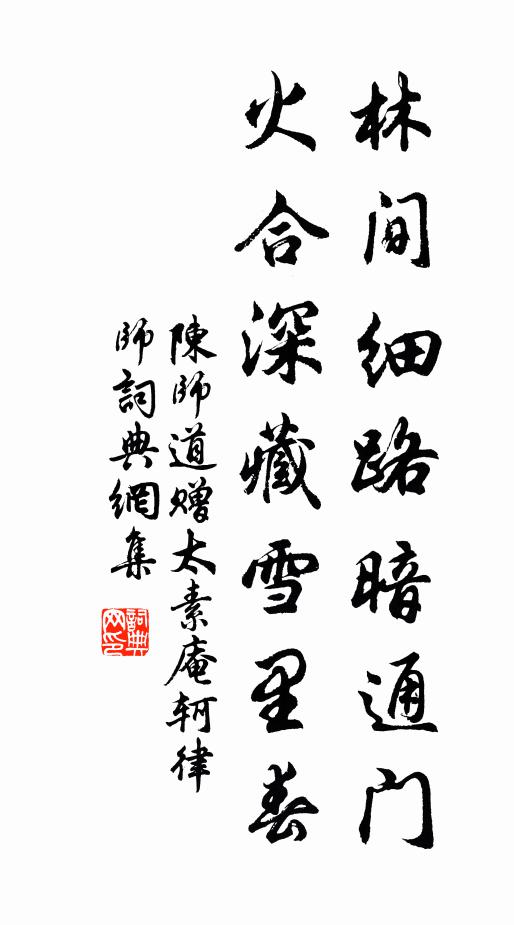 林間细路暗通門
火合深藏雪里春
陳師道贈太素庵軻律
師詞典網集
詞典
网印